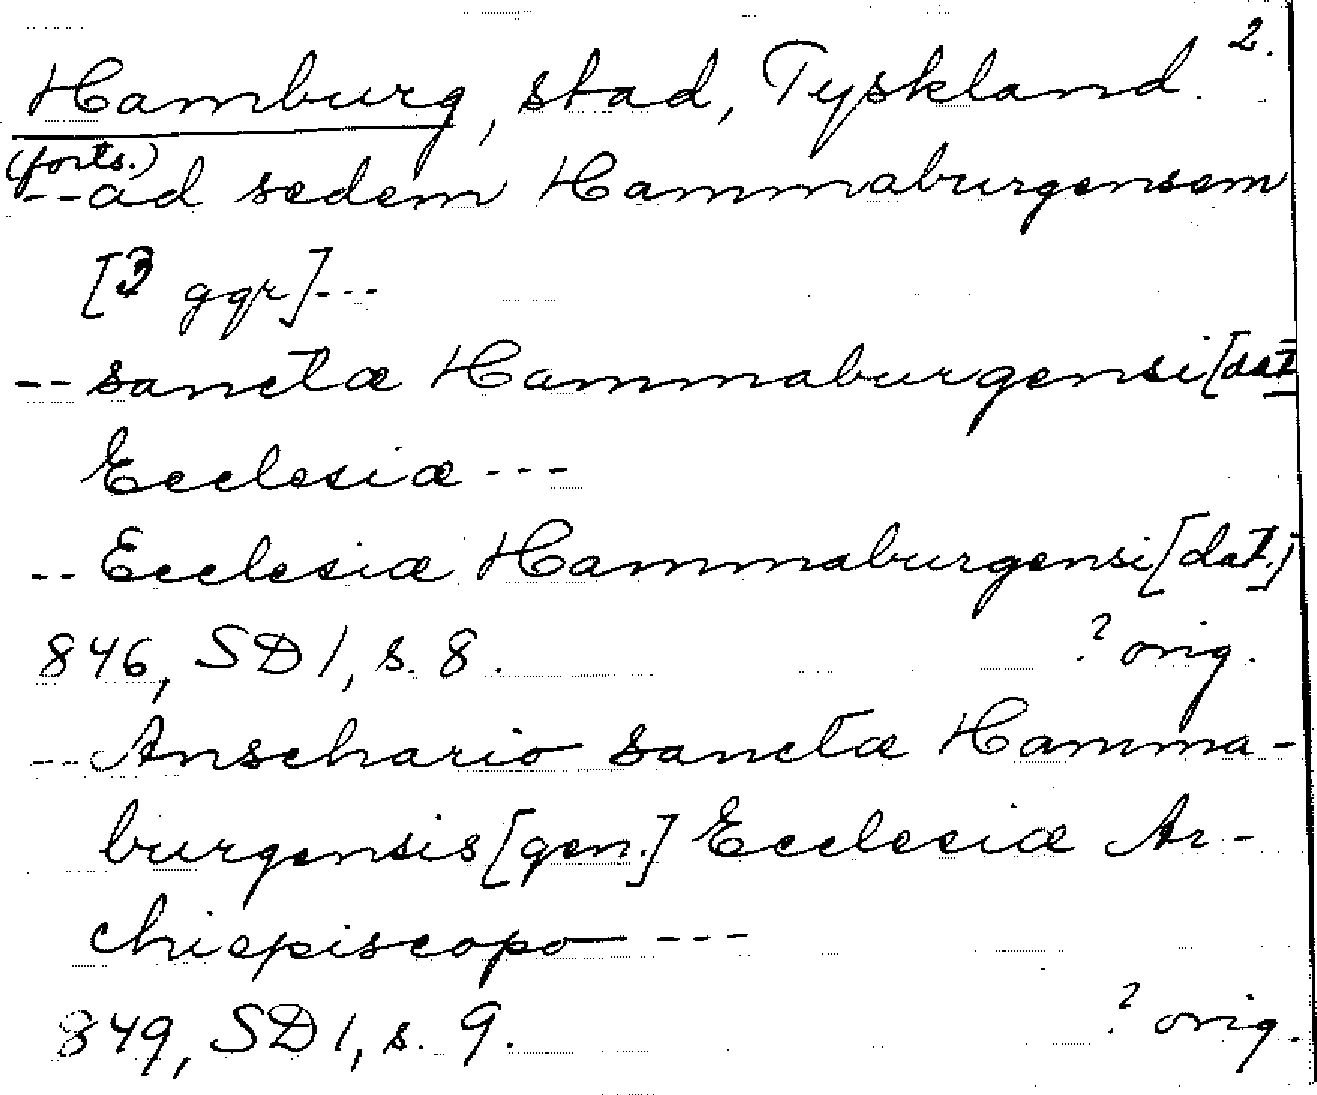 2.
Hamburg, stad, Tyskland.
(forts.)
--ad sedem Hammaburgensem
[3 ggr]---
--sanctæ Hammaburgensi [dat
Ecclesiæ ---
--Ecclesiæ Hammaburgensi [dat.]
846, SD 1, s. 8. ? orig.
--Anschario sanctæ Hamma-
burgensis [gen.] Ecclesiæ Ar-
chiepiscopo ---
849, SD 1, s. 9. ? orig.